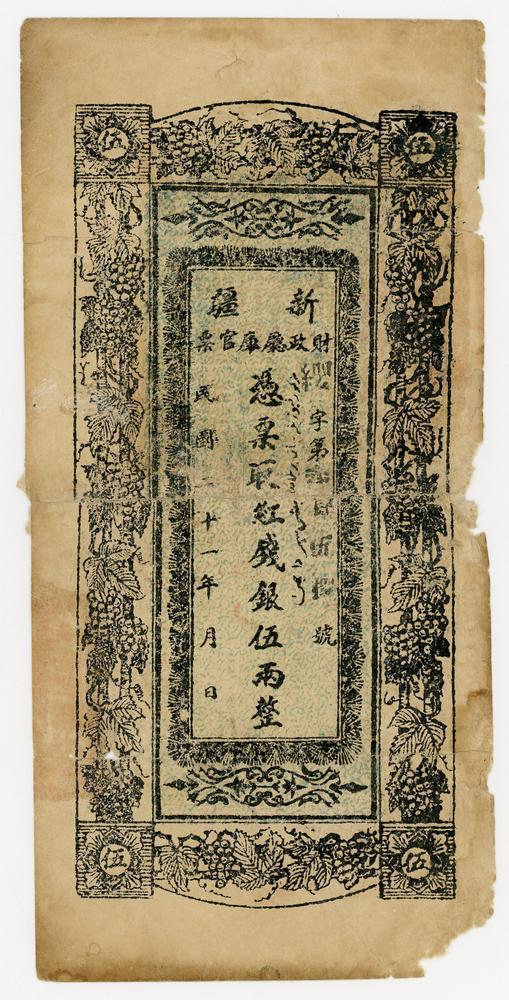 伍
伍
新疆
財政廳庫官票
字第
伍
號
憑票取紅錢銀伍兩整
民國二十一年月日
伍
伍